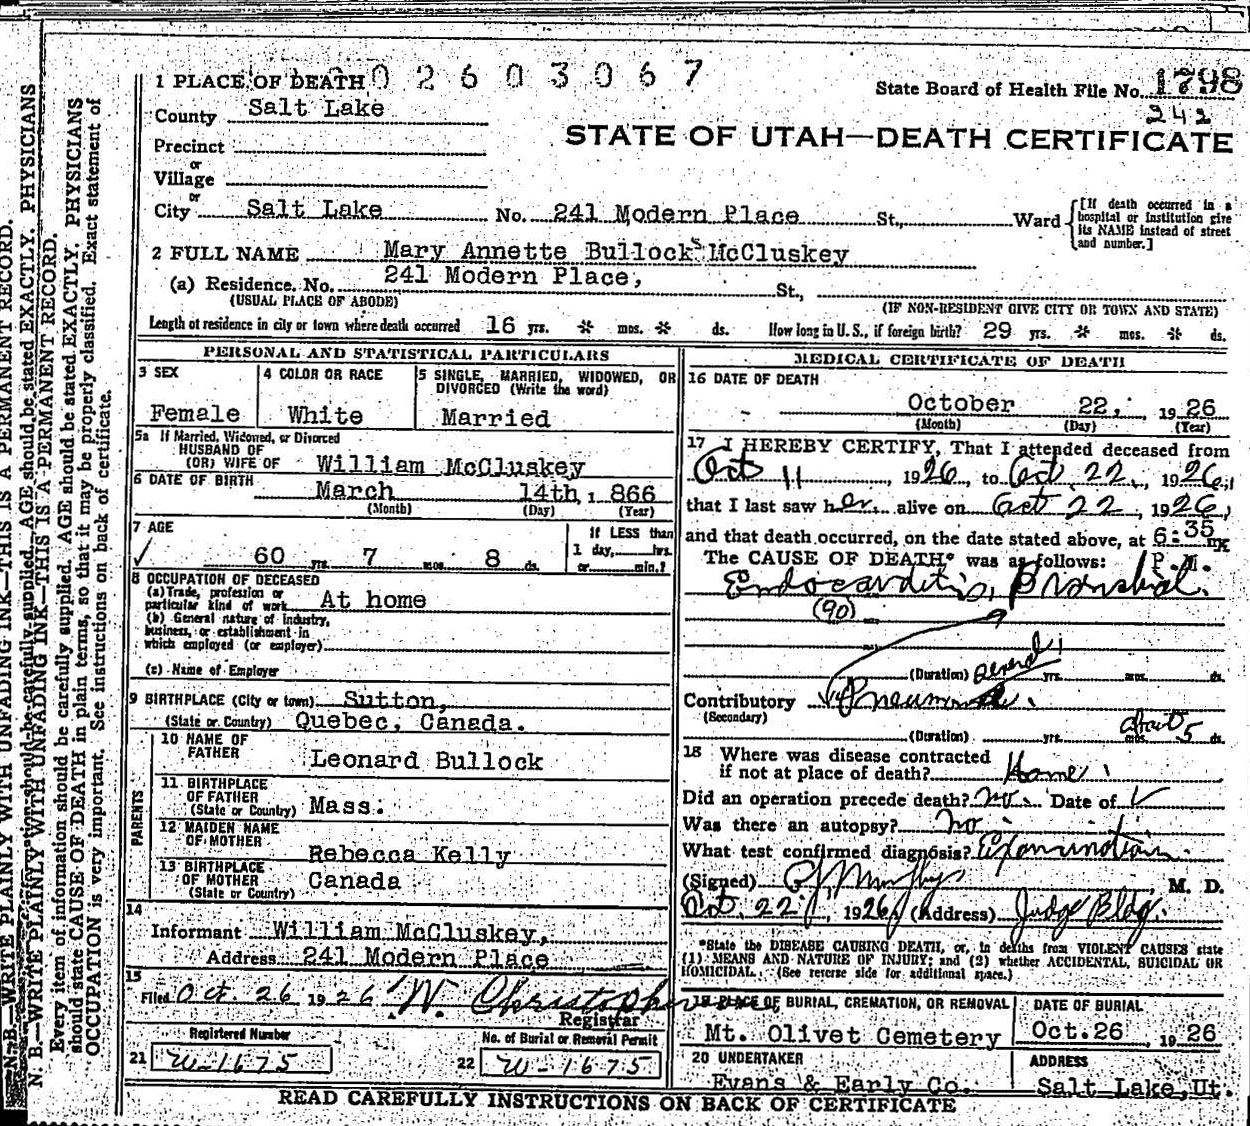 1 PLACE OF DEATH 02603067
State Board of Health File No. 1798
242
County Salt Lake
STATE OF UTAH—DEATH CERTIFICATE
Precinct
or
Village
or
City Salt Lake No. 241 Modern Place St., Ward
[If death occurred in a hospital or institution give its NAME instead of street and number.]
2 FULL NAME Mary Annette Bullock McCluskey
(a) Residence. No. 241 Modern Place, St.,
(USUAL PLACE OF ABODE) (IF NON-RESIDENT GIVE CITY OR TOWN AND STATE)
Length of residence in city or town where death occurred 16 yrs. * mos. * ds. How long in U. S., if foreign birth? 29 yrs. * mos. * ds.
PERSONAL AND STATISTICAL PARTICULARS
3 SEX
Female
4 COLOR OR RACE
White
5 SINGLE, MARRIED, WIDOWED, OR
DIVORCED (Write the word)
Married
5a If Married, Widowed, or Divorced
HUSBAND OF
(OR) WIFE OF William McCluskey
6 DATE OF BIRTH March 14th, 1866
(Month) (Day) (Year)
7 AGE
60 yrs. 7 mos. 8 ds.
If LESS than
1 day, hrs.
or min.?
8 OCCUPATION OF DECEASED
(a) Trade, profession or
particular kind of work At home
(b) General nature of Industry,
business, or establishment in
which employed (or employer)
(c) Name of Employer
9 BIRTHPLACE (City or town) Sutton,
(State or Country) Quebec, Canada.
PARENTS
10 NAME OF
FATHER Leonard Bullock
11 BIRTHPLACE
OF FATHER
(State or Country) Mass.
12 MAIDEN NAME
OF MOTHER
Rebecca Kelly
13 BIRTHPLACE
OF MOTHER
(State or Country) Canada
14
Informant William McCluskey,
Address 241 Modern Place
15
Filed Oct. 26 1926 W. Christopherson
Registrar
Registered Number
21 W-1675
No. of Burial or Removal Permit
22 W-1675
MEDICAL CERTIFICATE OF DEATH
16 DATE OF DEATH
October 22, 1926
(Month) (Day) (Year)
17 I HEREBY CERTIFY, That I attended deceased from
Oct 11, 1926, to Oct. 22, 1926,
that I last saw her alive on Oct 22, 1926,
and that death occurred, on the date stated above, at 6:35 m
The CAUSE OF DEATH* was as follows: P.M.
Endocarditis, Bronchial
(90)
(Duration) several yrs. mos. ds.
Contributory Pneumonia.
(Secondary)
(Duration) yrs. mos. about 5 ds.
18 Where was disease contracted
if not at place of death? Home
Did an operation precede death? no. Date of
Was there an autopsy? no
What test confirmed diagnosis? Examination
(Signed) Murphy M. D.
Oct. 22, 1926 (Address) Judge Bldg.
*State the DISEASE CAUSING DEATH, or, in deaths from VIOLENT CAUSES state
(1) MEANS AND NATURE OF INJURY; and (2) whether ACCIDENTAL, SUICIDAL OR
HOMICIDAL. (See reverse side for additional space.)
19 PLACE OF BURIAL, CREMATION, OR REMOVAL
Mt. Olivet Cemetery
DATE OF BURIAL
Oct.26, 1926
20 UNDERTAKER
Evans & Early Co.
ADDRESS
Salt Lake, Ut.
READ CAREFULLY INSTRUCTIONS ON BACK OF CERTIFICATE
N. B.—WRITE PLAINLY WITH UNFADING INK—THIS IS A PERMANENT RECORD.
Every item of information should be carefully supplied. AGE should be stated EXACTLY. PHYSICIANS
should state CAUSE OF DEATH in plain terms, so that it may be properly classified. Exact statement of
OCCUPATION is very important. See instructions on back of certificate.